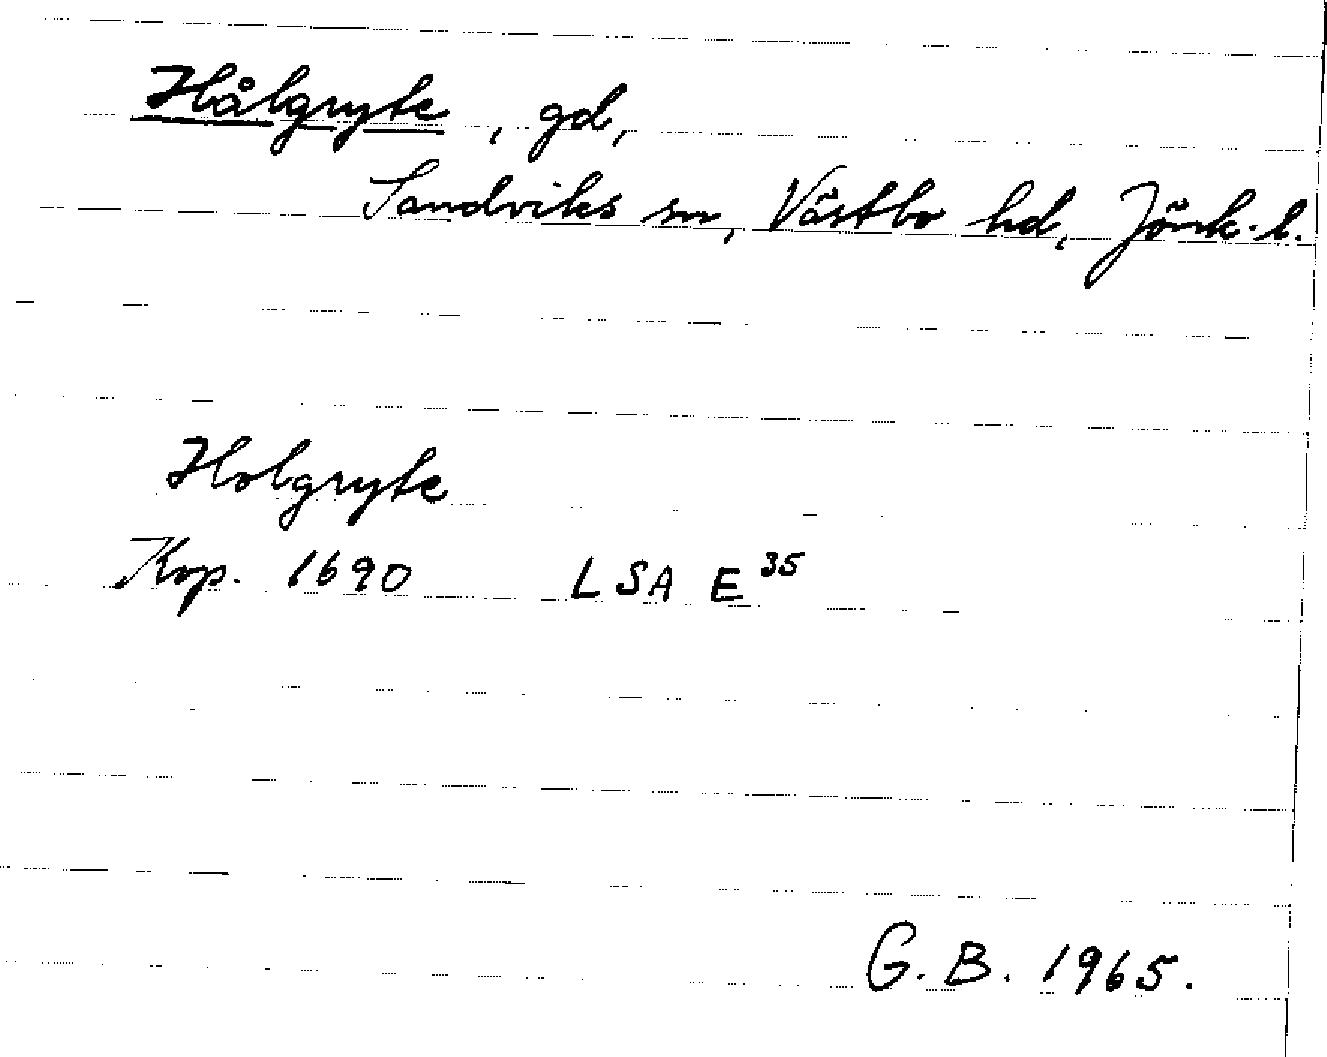 Hålgryte, gd,
Sandviks sn, Västbo hd, Jönk. l.
Holgryte
Kop. 1690 LSA E 35
G. B. 1965.